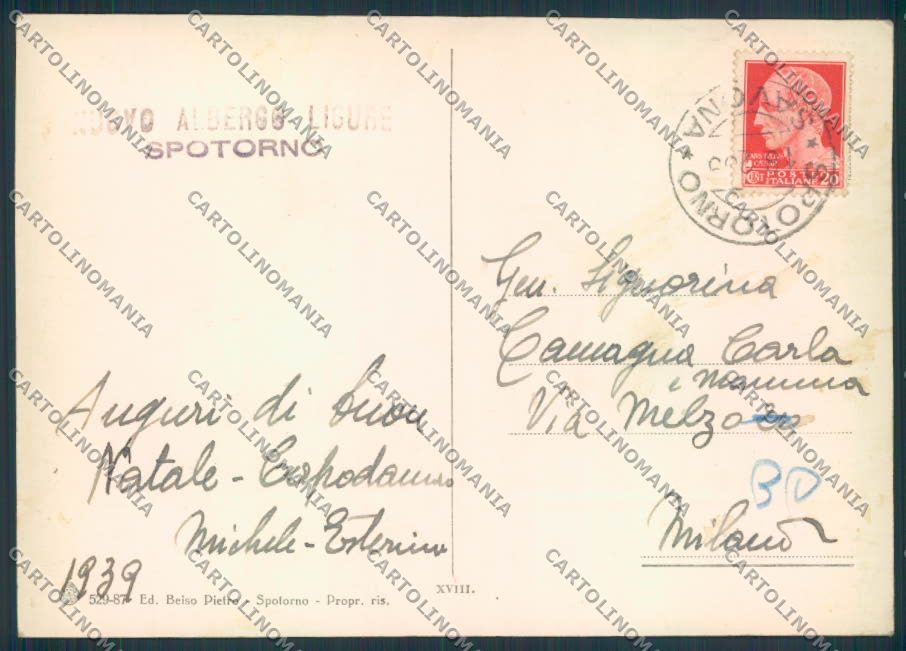 NUOVO ALBERGO LIGURE
SPOTORNO
Auguri di buon
Natale - Capodanno
Michele - Esterina
1939
529-87 Ed. Beiso Pietro - Spotorno - Propr. ris.
XVIII.
SPOTORNO * SAVONA *
POSTE
ITALIANE
CENT 20
Gen. Signorina
Camagna Carla
e mamma
Via Melzo
30
Milano
CARTOLINOMANIA